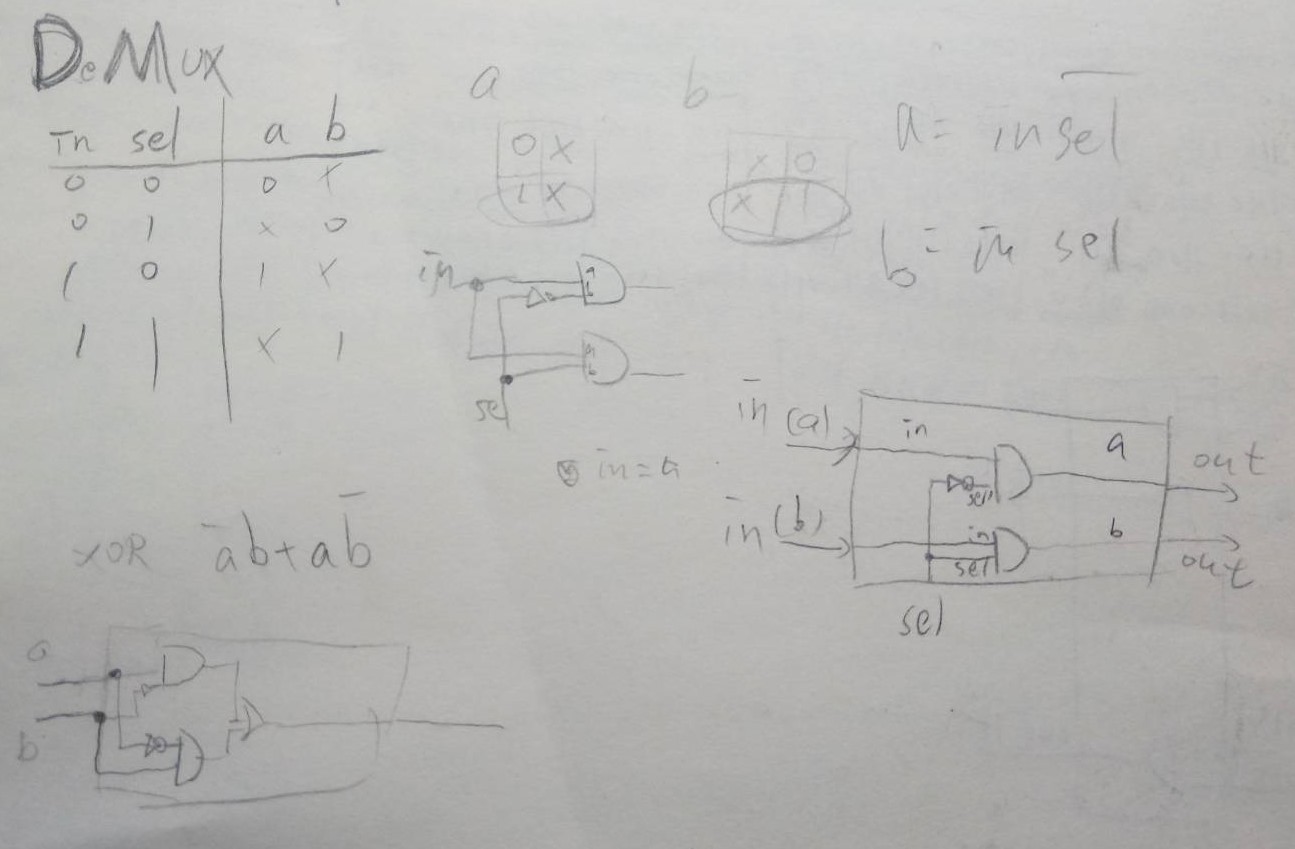 DeMux
in sel a b
0 0 0 x
0 1 x 0
1 0 1 x
1 1 x 1
a
0 x
1 x
b
x 0
x 1
a = in s̅e̅l̅
b = in sel
in
a
b
a
b
sel
in = a
in (a)
in
a
out
sel
in (b)
in
b
out
sel
sel
XOR a̅b + ab̅
a
b